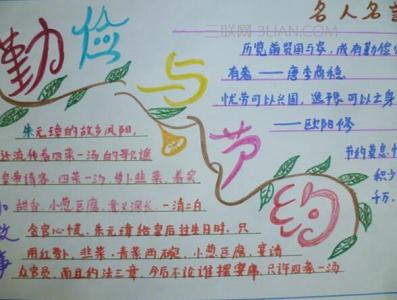 勤俭与节约
三联网 3LIAN.COM
名人名言
历览前贤国与家，成有勤俭
有奢 —— 唐李商隐
忧劳可以兴国，逸豫可以亡身
—— 欧阳修
节约莫怠
积少
千万。
小故事
朱元璋的故乡凤阳，
还流传着四菜一汤的歌谣
皇帝请客，四菜一汤，萝卜韭菜，着实
甜香，小葱豆腐，意义深长，一清二白
贪官心慌。朱元璋给皇后过生日时，只
用红萝卜、韭菜，青菜两碗，小葱豆腐，宴请
众官员，而且约法三章，今后不论谁摆宴席，只许四菜一汤